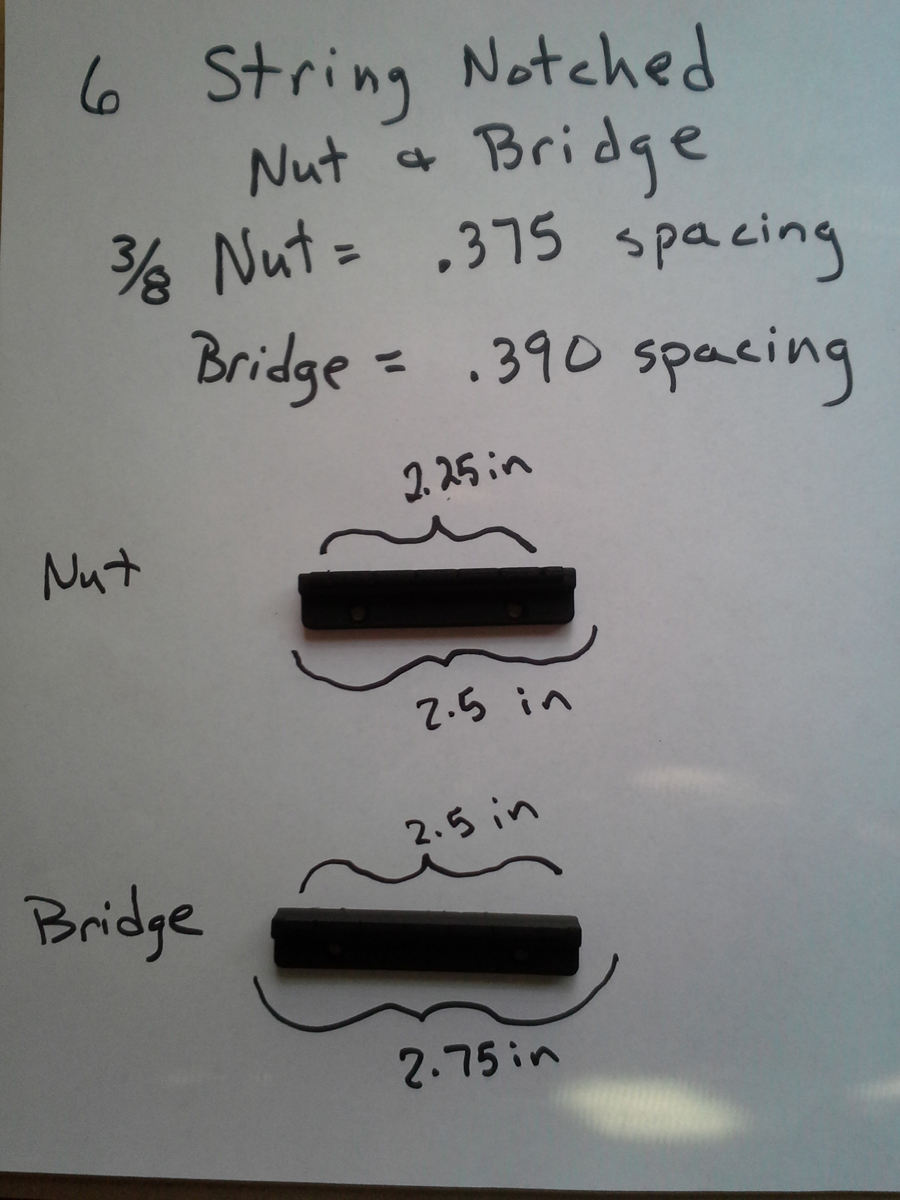 6 String Notched
Nut & Bridge
3/8 Nut = .375 spacing
Bridge = .390 spacing
2.25 in
Nut
2.5 in
2.5 in
Bridge
2.75 in